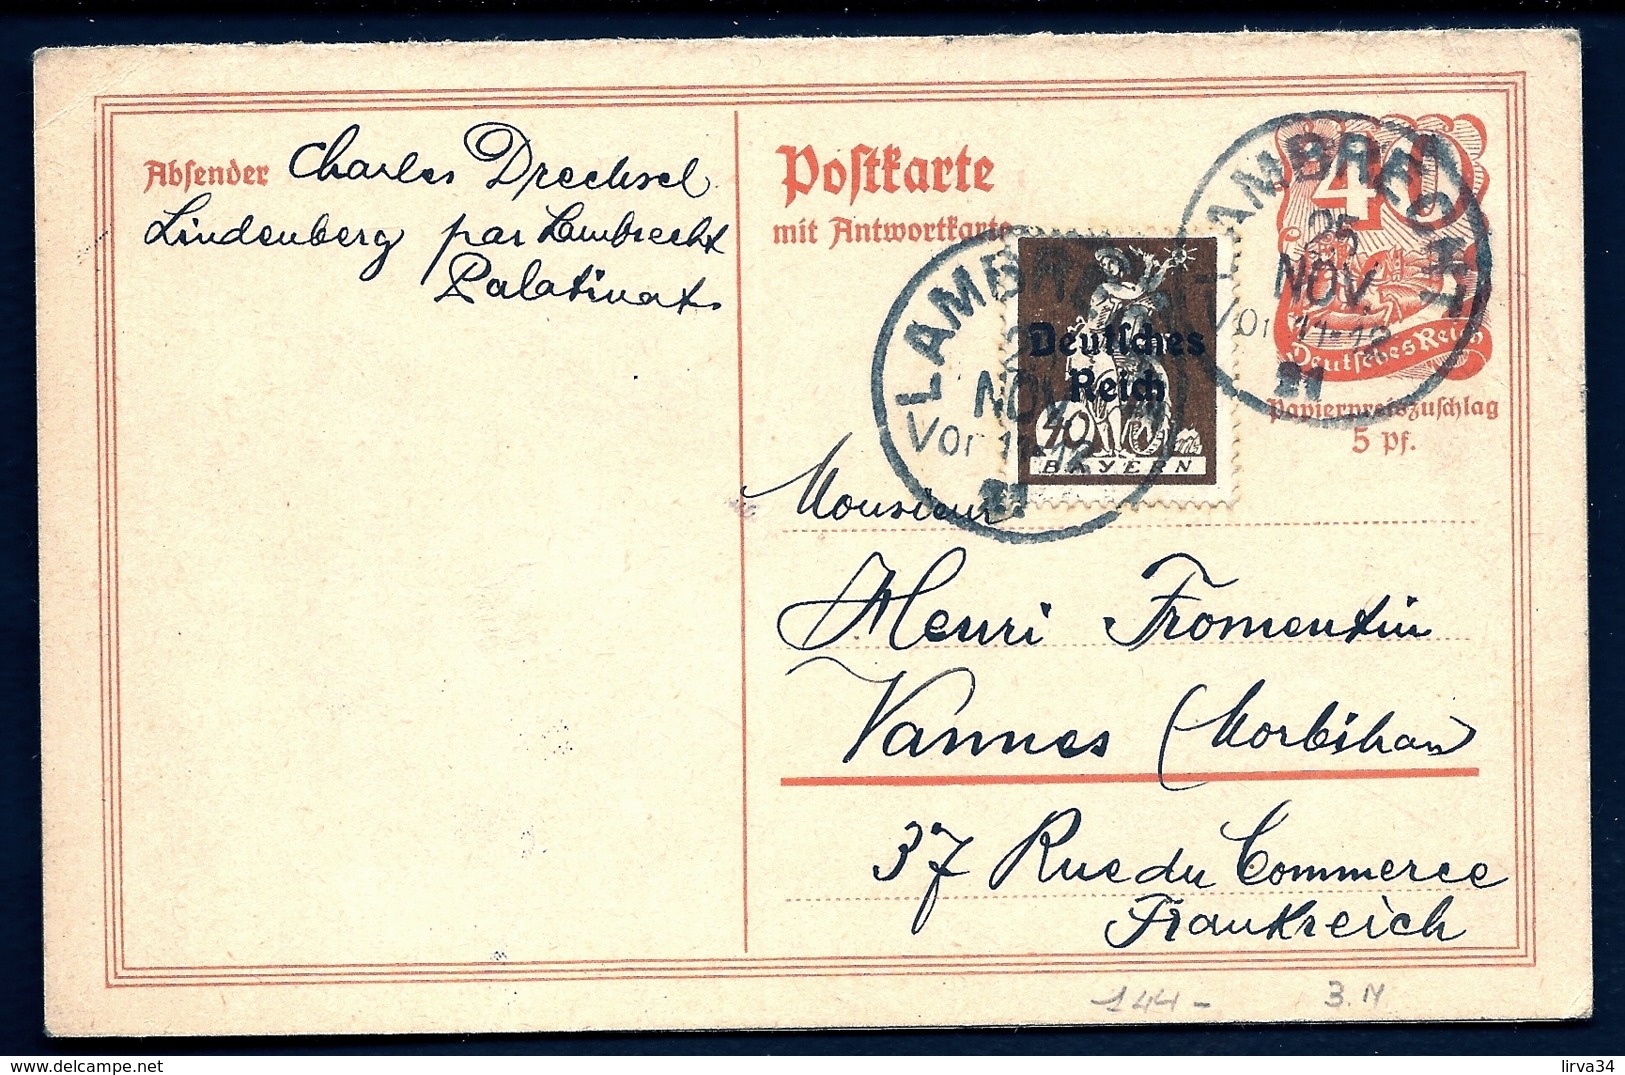 Absender Charles Drechsel
Lindenberg par Lambrecht
Palatinat
Postkarte
mit Antwortkarte
40
Deutsches Reich
Papierpreiszuschlag
5 Pf.
LAMBRECHT
25
NOV.
Vor 11-12
21
LAMBRECHT
NOV.
Vor 11-12
21
Deutsches
Reich
40
BAYERN
Monsieur
Henri Fromentin
Vannes (Morbihan)
37 Rue du Commerce
Frankreich
144 -
3.N
lirva34